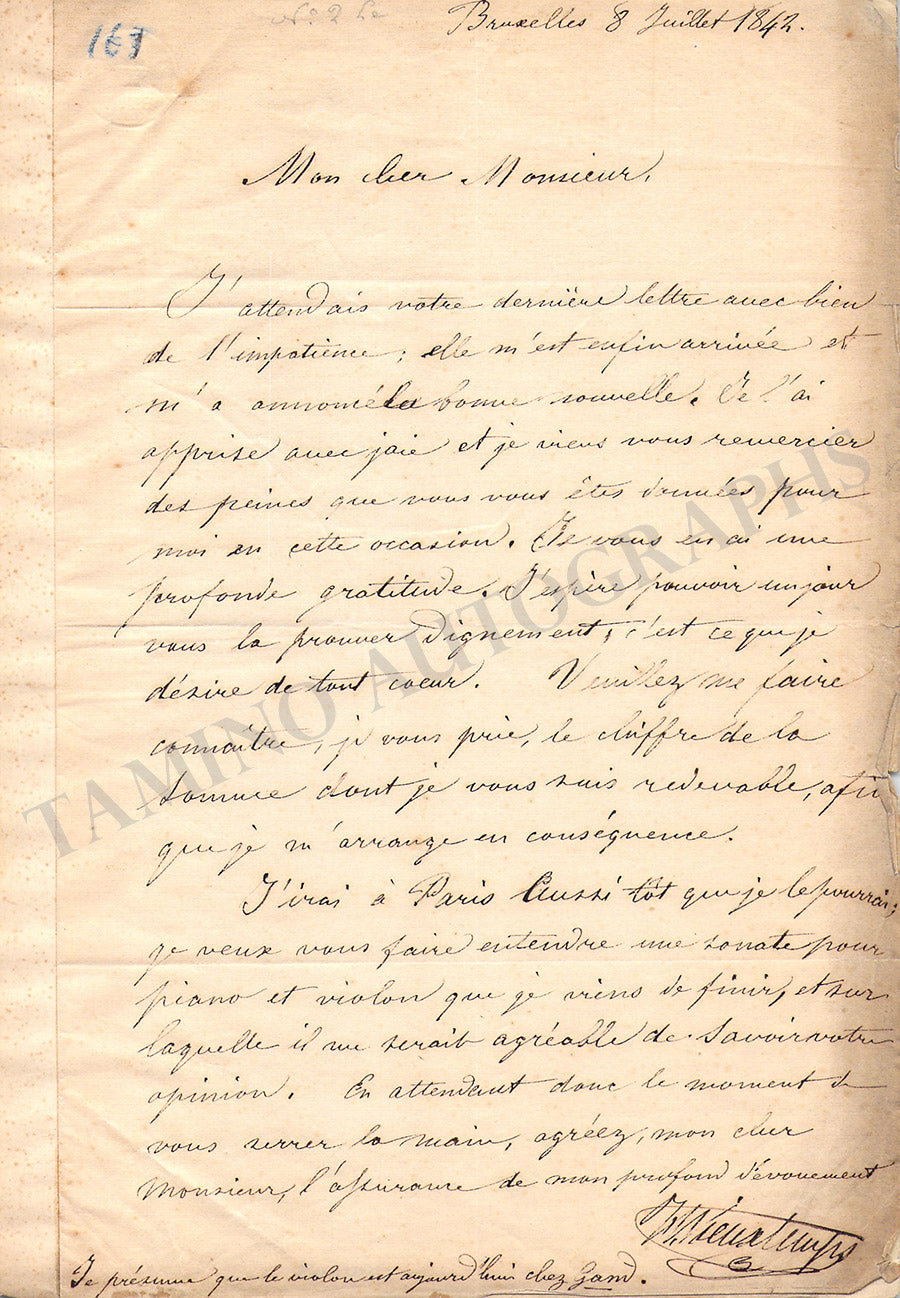 167
No 2
Bruxelles 8 Juillet 1842.
Mon cher Monsieur,
J'attendais votre dernière lettre avec bien
de l'impatience; elle m'est enfin arrivée et
m'a annoncé la bonne nouvelle. Je l'ai
apprise avec joie et je viens vous remercier
des peines que vous vous êtes données pour
moi en cette occasion. Je vous en ai une
profonde gratitude. J'espère pouvoir un jour
vous la prouver dignement, c'est ce que je
désire de tout coeur. Veuillez me faire
connaître, je vous prie, le chiffre de la
somme dont je vous suis redevable, afin
que je m'arrange en conséquence.
J'irai à Paris Aussi tôt que je le pourrai;
je veux vous faire entendre une sonate pour
piano et violon que je viens de finir, et sur
laquelle il me serait agréable de savoir votre
opinion. En attendant donc le moment de
vous serrer la main, agréez, mon cher
Monsieur, l'assurance de mon profond dévouement
H. Vieuxtemps
Je présume que le violon est aujourd'hui chez Gand.
TAMINO AUTOGRAPHS